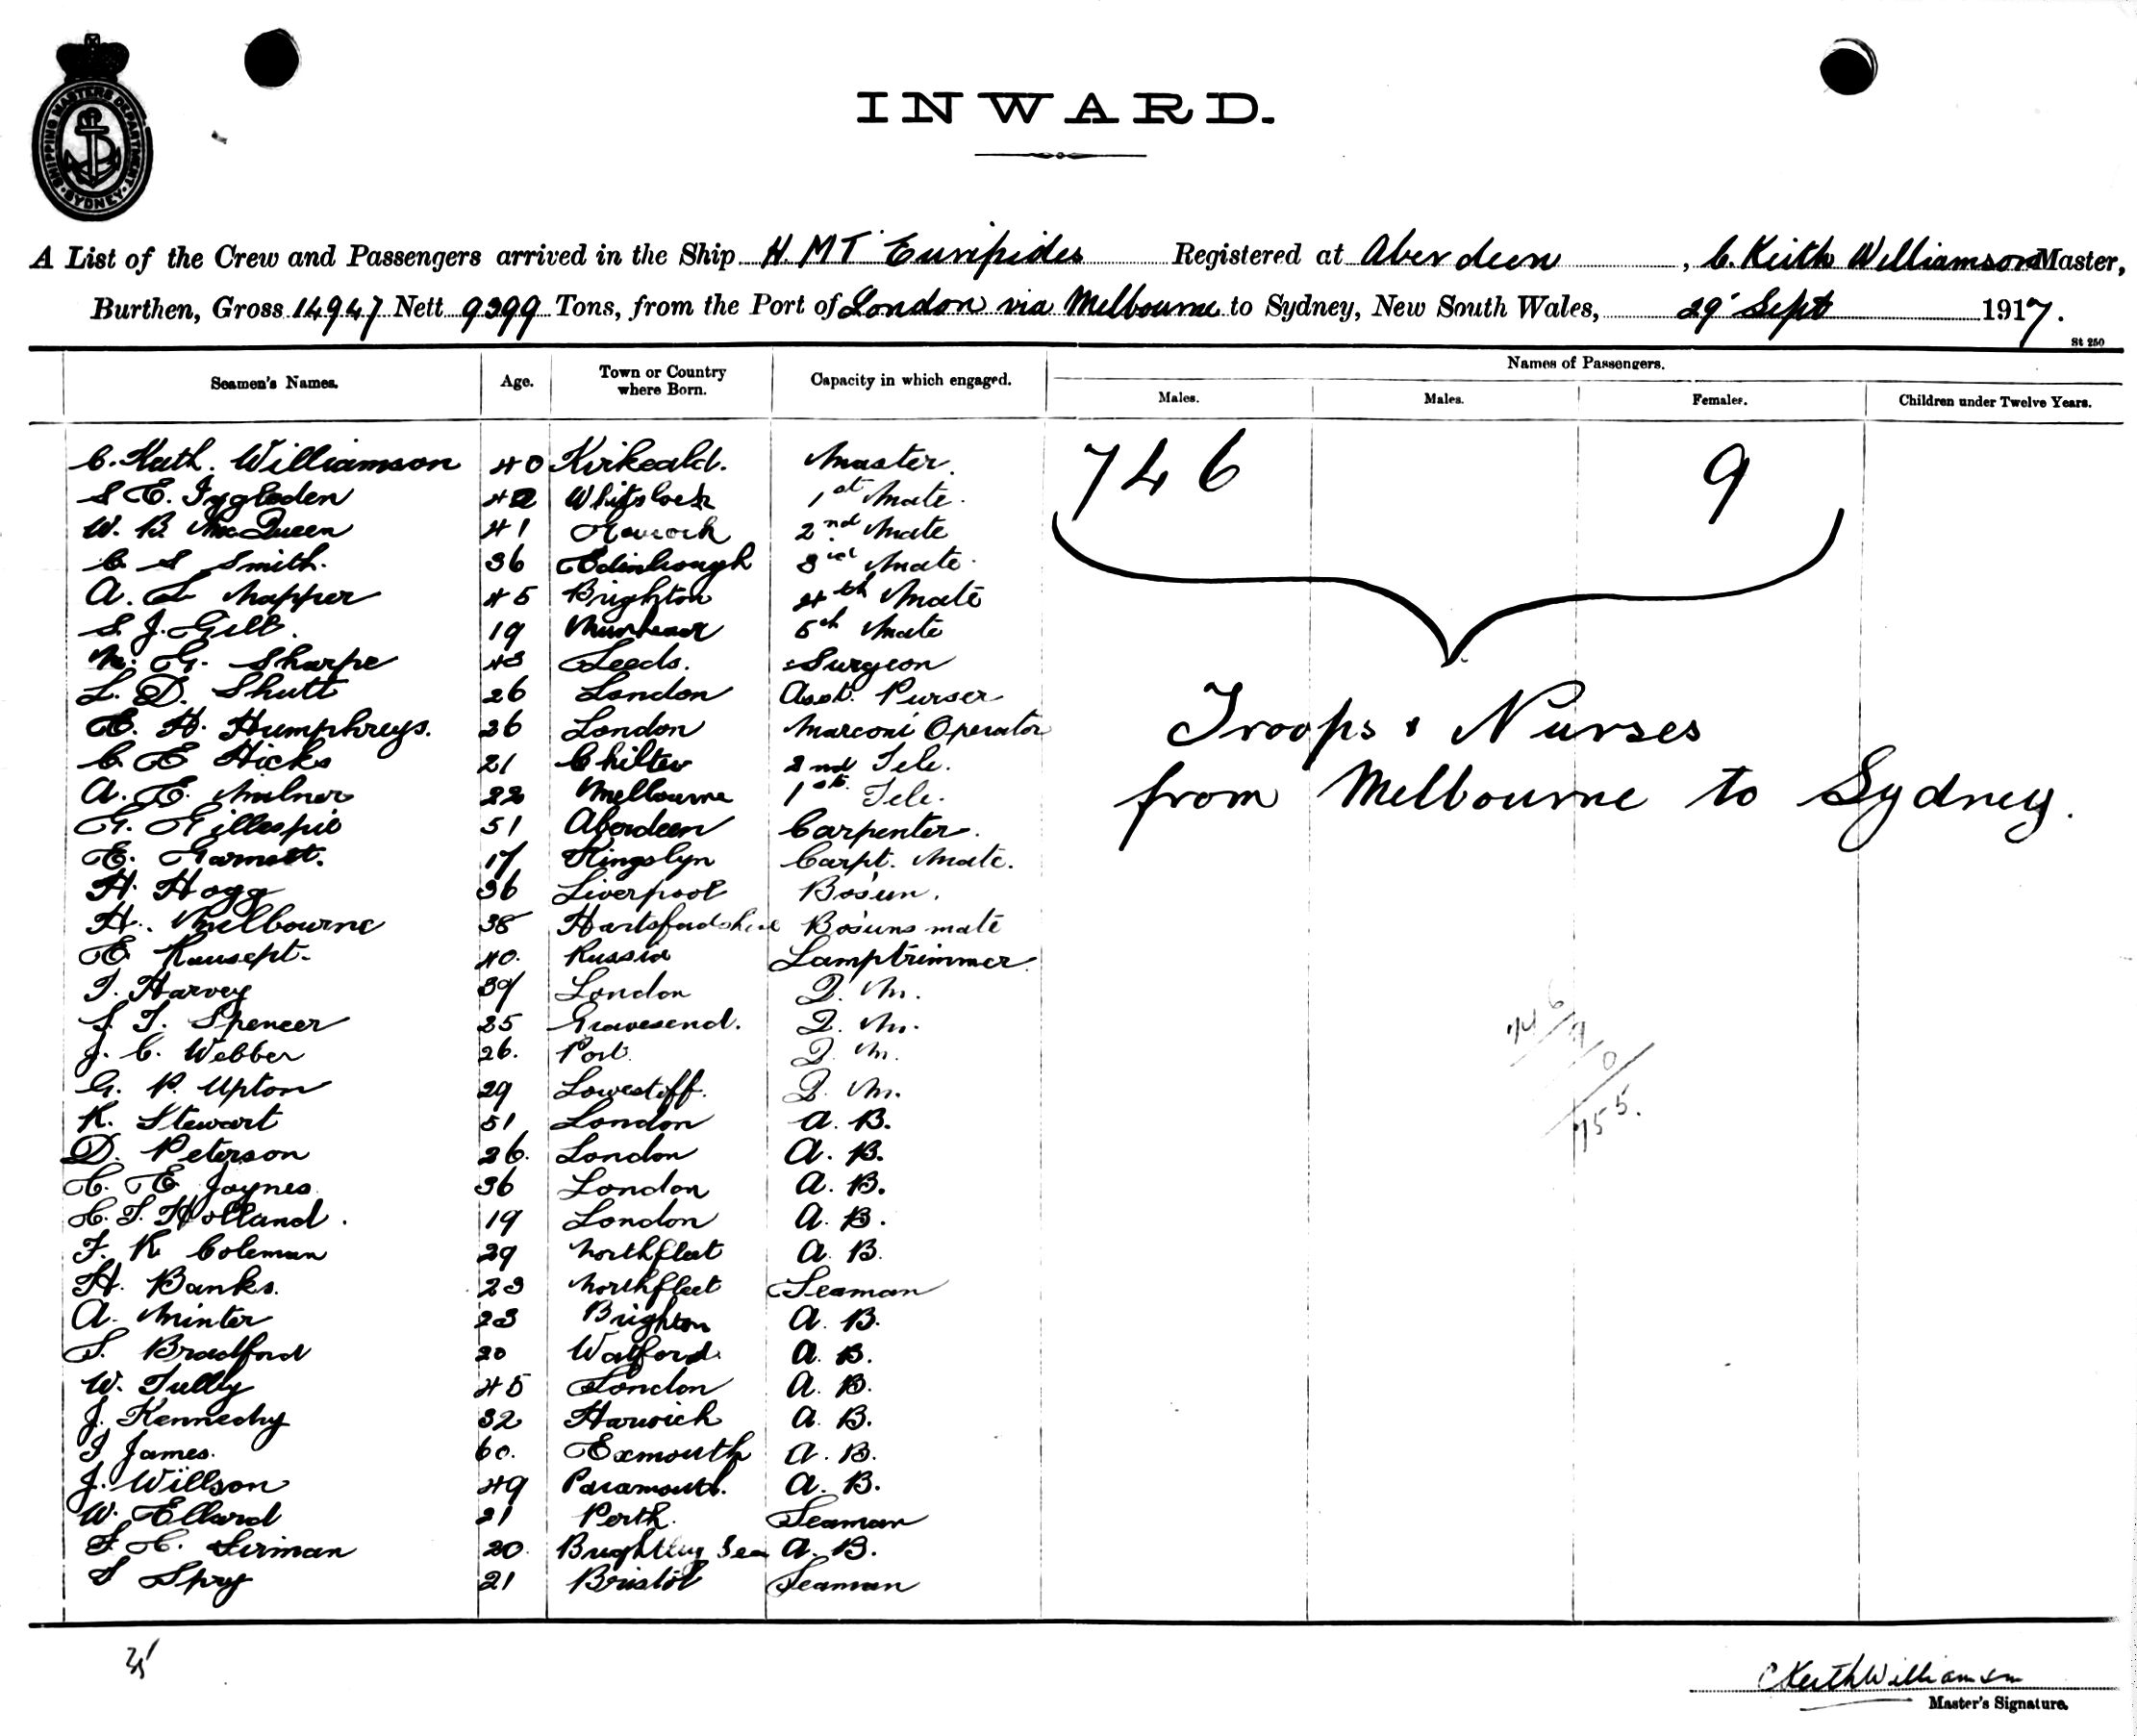 SHIPPING MASTERS DEPARTMENT · SYDNEY ·
INWARD.
A List of the Crew and Passengers arrived in the Ship H. M T Euripides Registered at Aberdeen, C. Keith Williamson Master,
Burthen, Gross 14947 Nett 9399 Tons, from the Port of London via Melbourne to Sydney, New South Wales, 29 Sept 1917.
St 250
Seamen's Names. Age. Town or Country where Born. Capacity in which engaged. Names of Passengers.
Males. Males. Females. Children under Twelve Years.
C. Keith. Williamson 40 Kirkcald. Master.
S E. Iggleden 42 1st Mate.
W. B. McQueen 41 2nd Mate
C S Smith. 36 Edinbough 3rd Mate.
A. L Mapper 45 Brighton 4th Mate
S. J. Gill. 19 5th Mate
M. G. Sharpe 43 Leeds. Surgeon
L. D. Shutt 26 London Asst. Purser
E. H. Humphreys. 26 London Marconi Operator
C. E Hicks 21 Chilter 2nd Tele.
A. E. Milner 22 Melbourne 1st Tele.
G. Gillespie 51 Aberdeen Carpenter.
E. 17 Kingslyn Carpt. Mate.
H. Hogg 36 Liverpool Bosun.
H. Melbourne 38 Bosuns mate
E Kausept. 40. Russia Lamptrimmer.
T. Harvey 39 London Q. M.
S. T. Spencer 25 Gravesend. Q. M.
J. C. Webber 26. Port. Q. M.
G. P. Upton 29 Lowestoff. Q. M.
R. Stewart 51 London A. B.
D. Peterson 26. London A. B.
C. E Jaynes 36 London A. B.
H. T. Holland. 19 London A. B.
F. R Coleman 29 Northfleet A. B.
H. Banks. 23 Northfleet Seaman
A. Minter 23 Brighton A. B.
S. Bradford 20 Watford. A. B.
W. Tully 45 London A. B.
J. Kennedy 32 Harwich A. B.
J James. 60. Exmouth A. B.
J. Willson 49 A. B.
W. Ellard 21 Perth. Seaman
S. H. Sirman 20. Brightling Sea A. B.
S Spry 21 Bristol Seaman
746 9
Troops & Nurses
from Melbourne to Sydney.
746
9
0
755.
35
C Keith Williamson
Master's Signature.